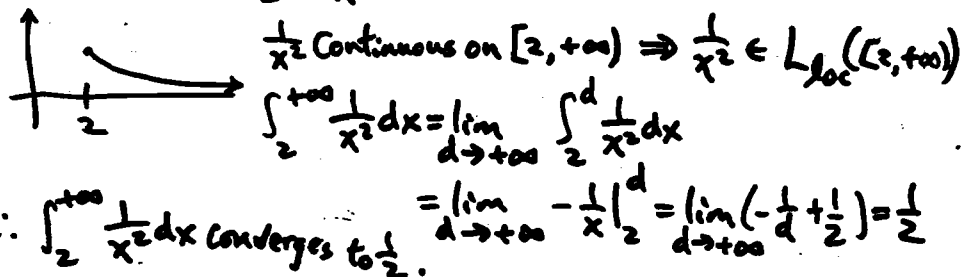 1/x² Continuous on [2, +∞) ⇒ 1/x² ∈ L_loc([2, +∞))
2
∫_2^{+∞} 1/x² dx = lim_{d→+∞} ∫_2^d 1/x² dx
= lim_{d→+∞} -1/x |_2^d = lim_{d→+∞} (-1/d + 1/2) = 1/2
∴ ∫_2^{+∞} 1/x² dx converges to 1/2.